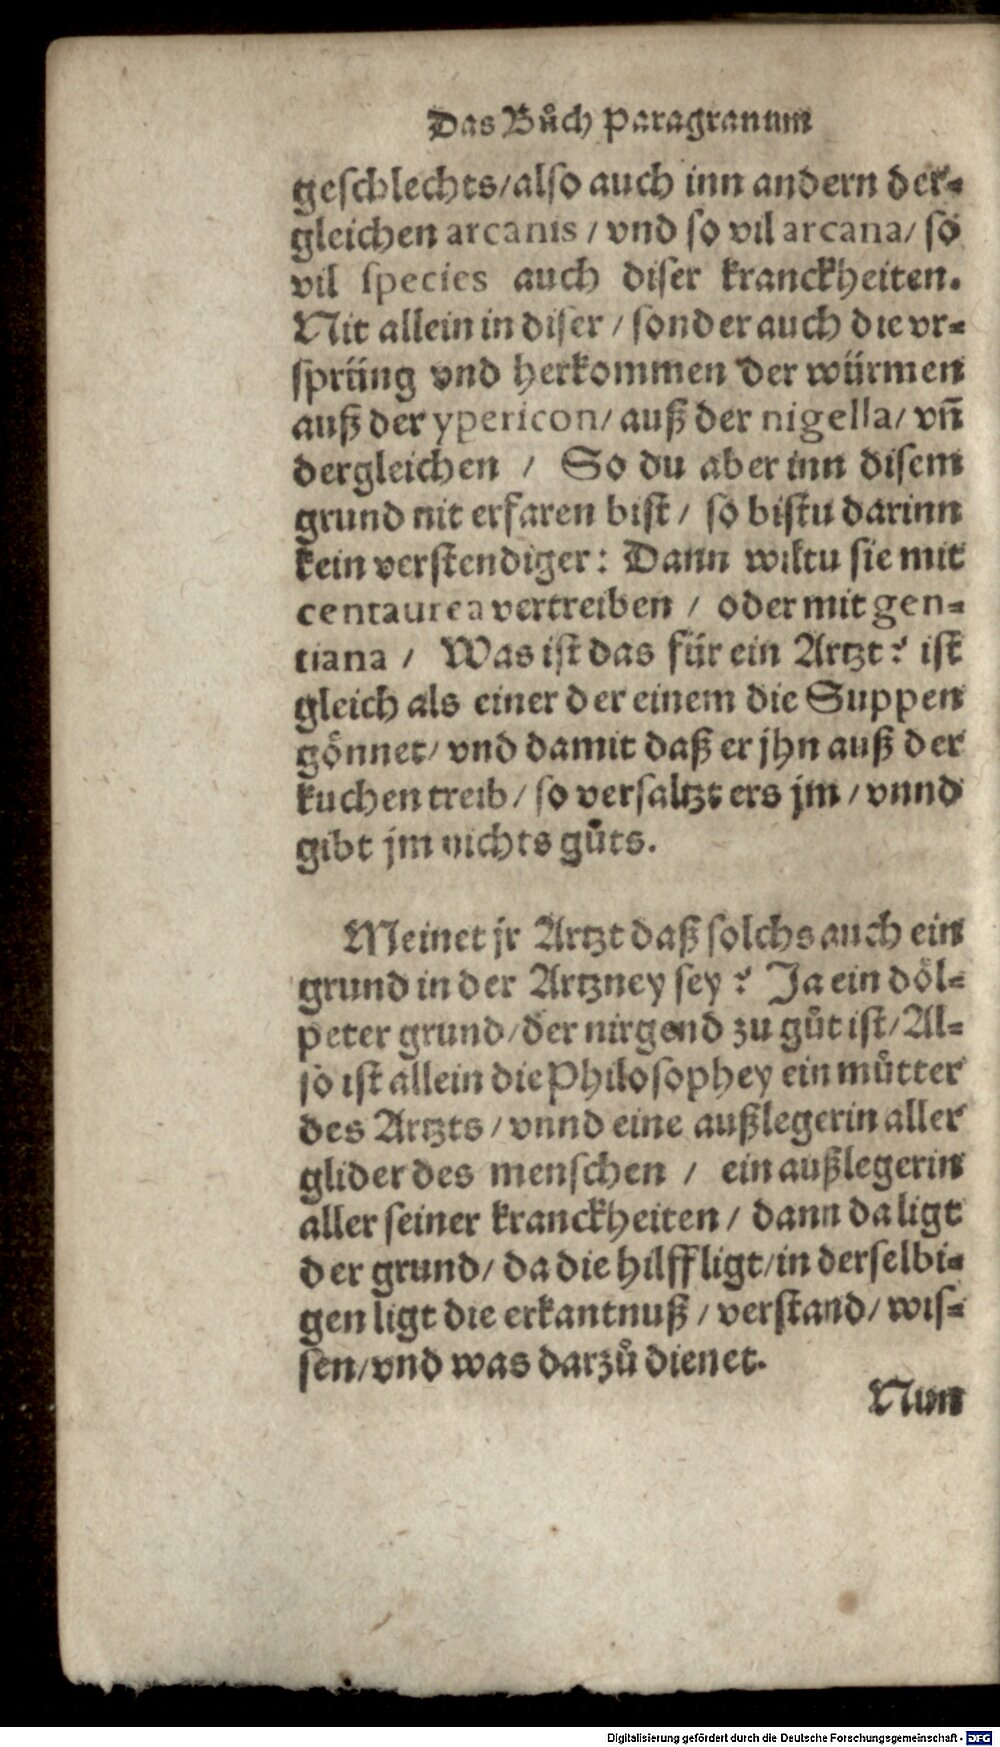 Das Bůch Paragranum
geſchlechts/alſo auch inn andern der-
gleichen arcanis / vnd ſo vil arcana/ ſo
vil ſpecies auch diſer kranckheiten.
Nit allein in diſer / ſonder auch die vr-
ſprüng vnd herkommen der würmen
auß der ypericon/ auß der nigella/ vñ
dergleichen / So du aber inn diſem
grund nit erfaren biſt / ſo biſtu darinn
kein verſtendiger: Dann wiltu ſie mit
centaurea vertreiben / oder mit gen-
tiana / Was iſt das für ein Artzt? iſt
gleich als einer der einem die Suppen
gönnet/ vnd damit daß er jhn auß der
kuchen treib/ ſo verſaltzt ers jm / vnnd
gibt jm nichts gůts.
Meinet jr Artzt daß ſolchs auch ein
grund in der Artzney ſey? Ja ein döl-
peter grund/der nirgend zu gůt iſt/Al-
ſo iſt allein die Philoſophey ein můtter
des Artzts / vnnd eine außlegerin aller
glider des menſchen / ein außlegerin
aller ſeiner kranckheiten/ dann da ligt
der grund/ da die hilff ligt/in derſelbi-
gen ligt die erkantnuß / verſtand/ wiſ-
ſen/vnd was darzů dienet.
Nun
Digitalisierung gefördert durch die Deutsche Forschungsgemeinschaft - DFG